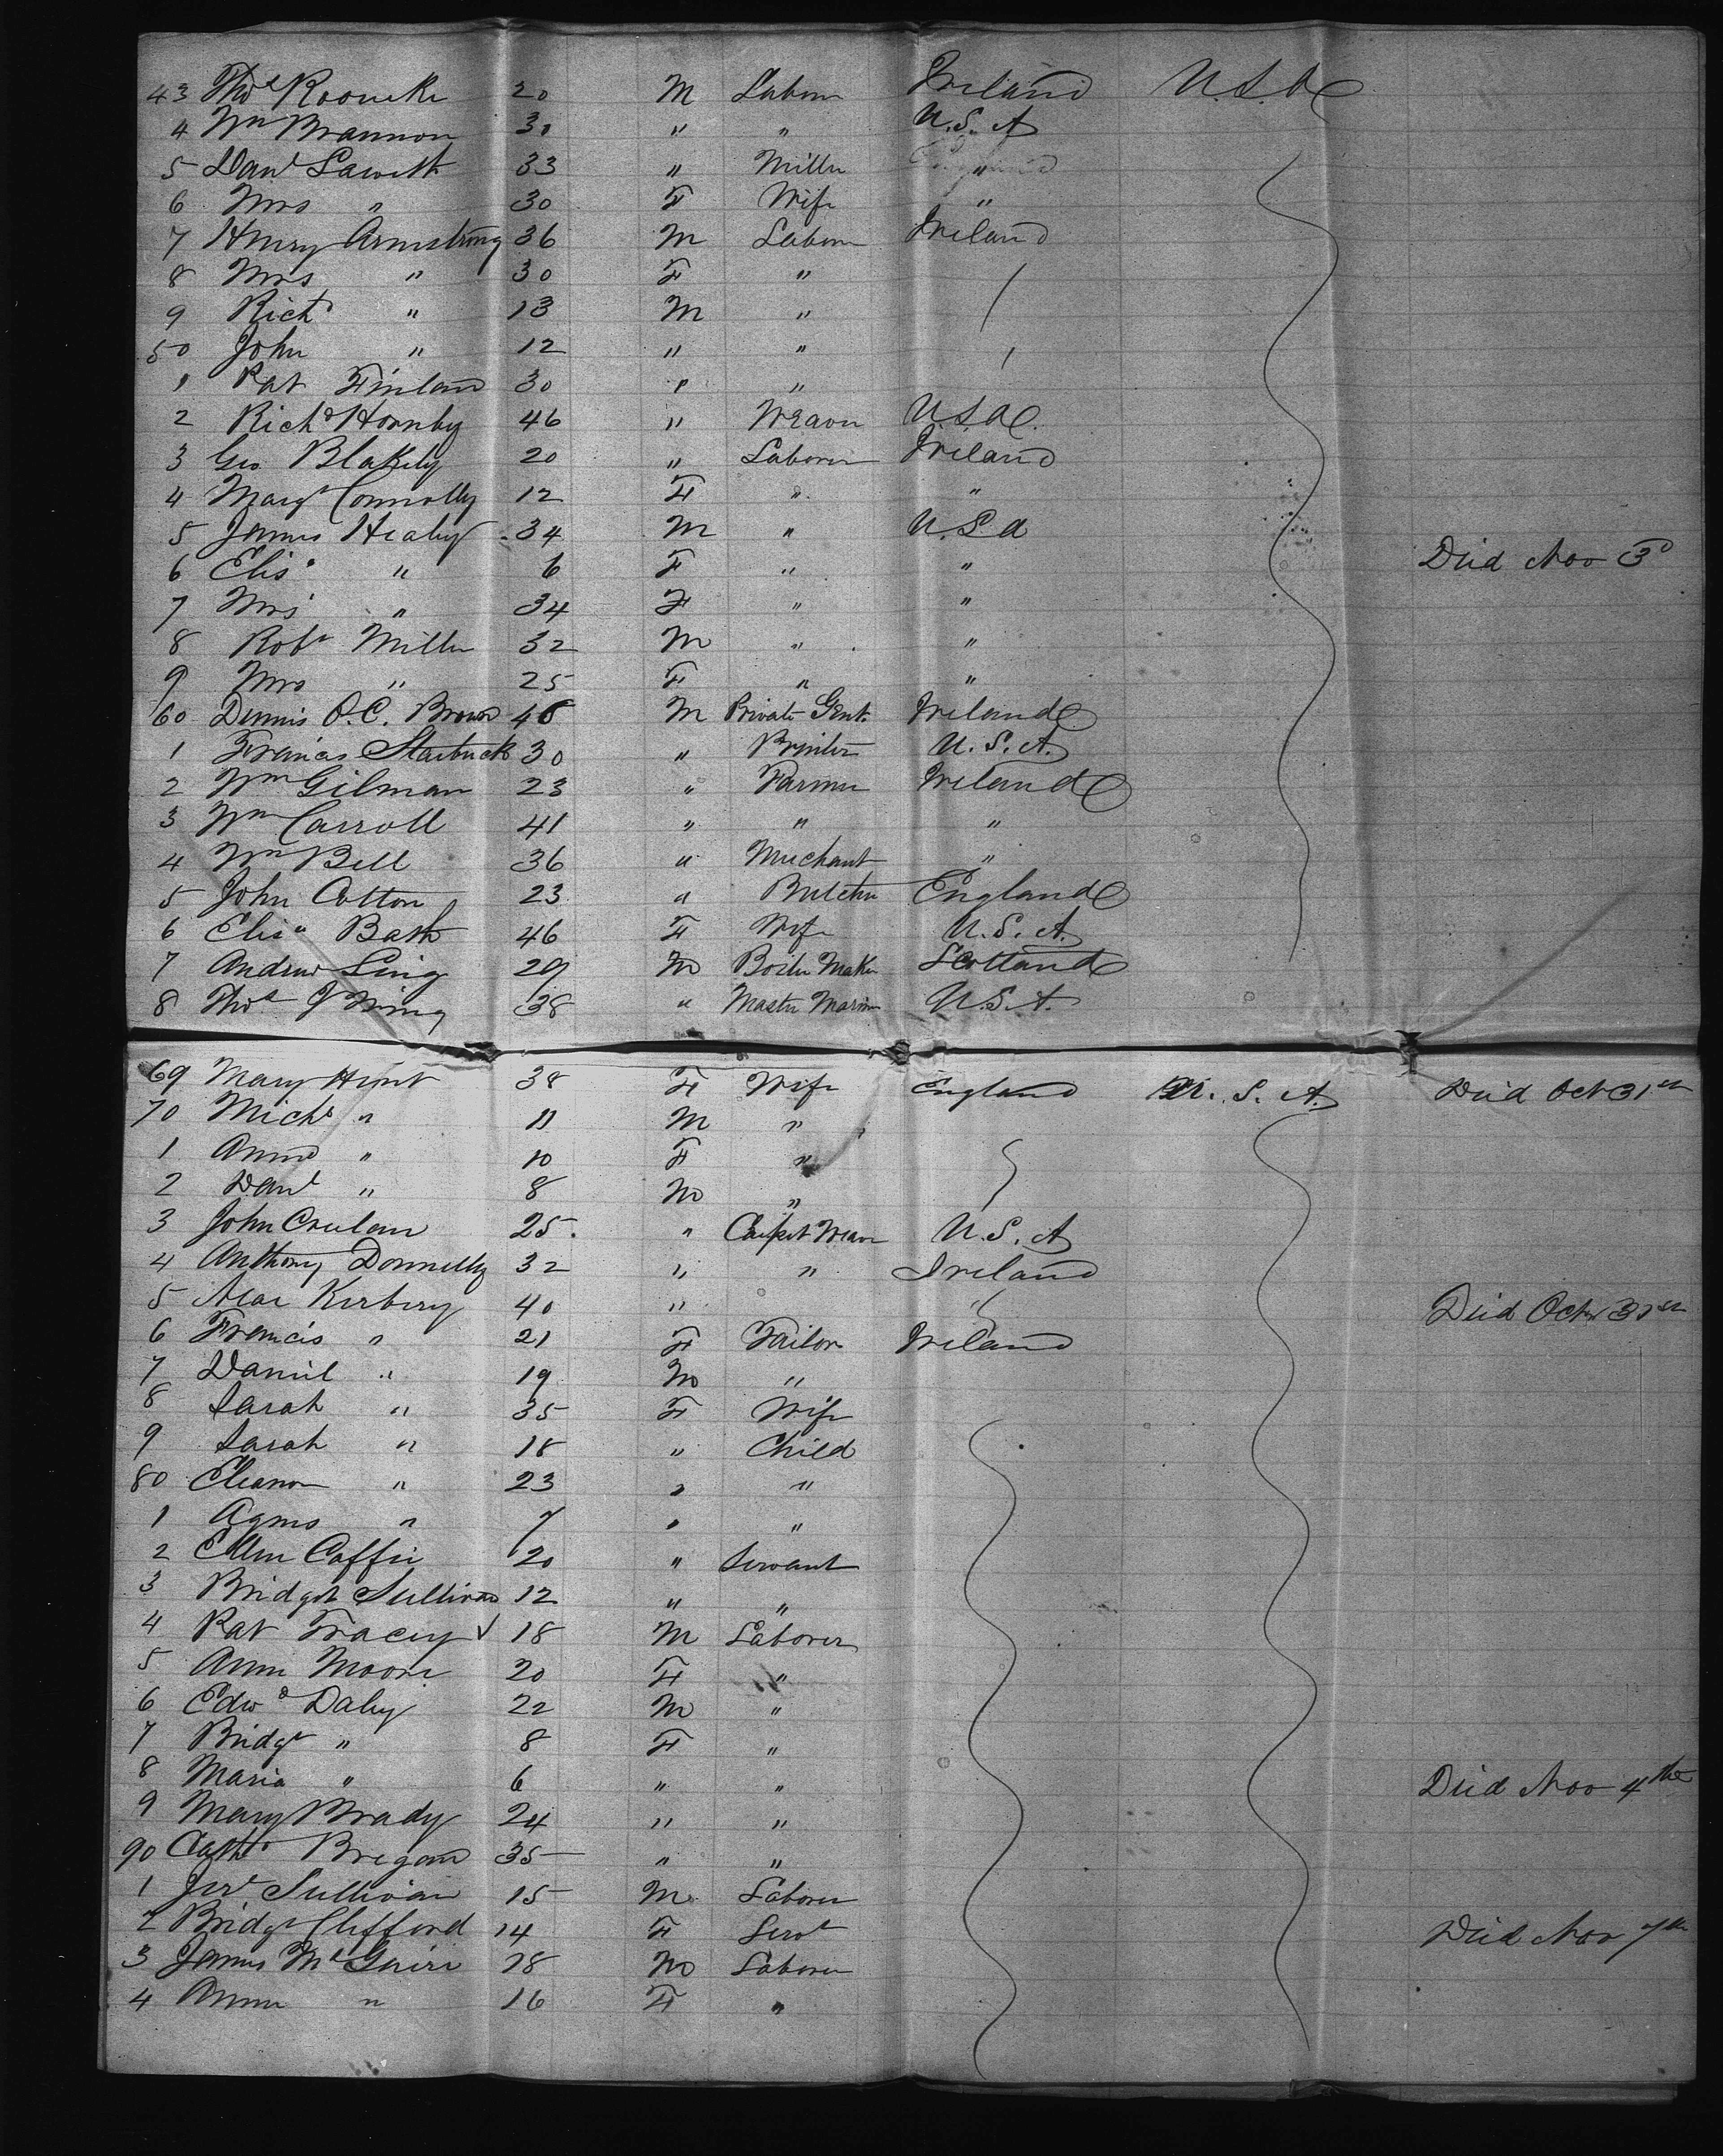 43 Thos 20 M Labor Ireland U.S.A
4 Wm Brannon 30 " " U.S.A
5 Danl 33 " Miller "
6 Mrs " 30 F Wife "
7 Henry Armstrong 36 M Labor Ireland
8 Mrs " 30 F "
9 Richd " 13 M "
50 John " 12 " "
1 Pat Finland 30 " "
2 Richd Hornby 46 " Weaver U.S.A.
3 Geo Blakely 20 " Laborer Ireland
4 Margt Connolly 12 F " "
5 James Healy 34 M " U.S.A
6 Elisa " 6 F " " Died Nov 3d
7 Mrs " 34 F " "
8 Robt Miller 32 M " "
9 Mrs " 25 F " "
60 Dennis O.C. Brown 48 M Private Gent. Ireland
1 Francis Starbuck 30 " Printer U.S.A.
2 Wm Gilman 23 " Farmer Ireland
3 Wm Carroll 41 " " "
4 Wm Bell 36 " Merchant "
5 John Cotton 23 " Butcher England
6 Elisa Bash 46 F Wife U.S.A.
7 Andrew Ling 29 M Boiler Maker Scotland
8 Thos 38 " Master Marine U.S.A.
69 Mary Hunt 38 F Wife England U.S.A. Died Oct 31st
70 Michl " 11 M "
1 Anna " 10 F "
2 Danl " 8 M "
3 John Crulan 25 " Carpet Weaver U.S.A
4 Anthony Donnelly 32 " " Ireland
5 Kerbery 40 " " Died Oct 31st
6 Francis " 21 F Tailor Ireland
7 Daniel " 19 M "
8 Sarah " 35 F Wife
9 Sarah " 18 " Child
80 Eleanor " 23 " "
1 Agnes " 7 " "
2 Ellen Coffie 20 " Servant
3 Bridget Sullivan 12 " "
4 Pat Tracey 18 M Laborer
5 Ann Moore 20 F "
6 Edwd Daley 22 M "
7 Bridgt " 8 F "
8 Maria " 6 " " Died Nov 4th
9 Mary Brady 24 " "
90 Cathe Bregan 35 " "
1 Jert Sullivan 15 M Laborer
2 Bridgt Clifford 14 F Servt Died Nov 7th
3 James McGuire 28 M Laborer
4 Anne " 16 F "